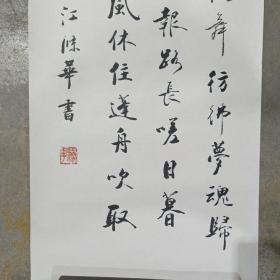 舞彷彿夢魂歸
報路長嗟日暮
風休住蓬舟吹取
江滌華書